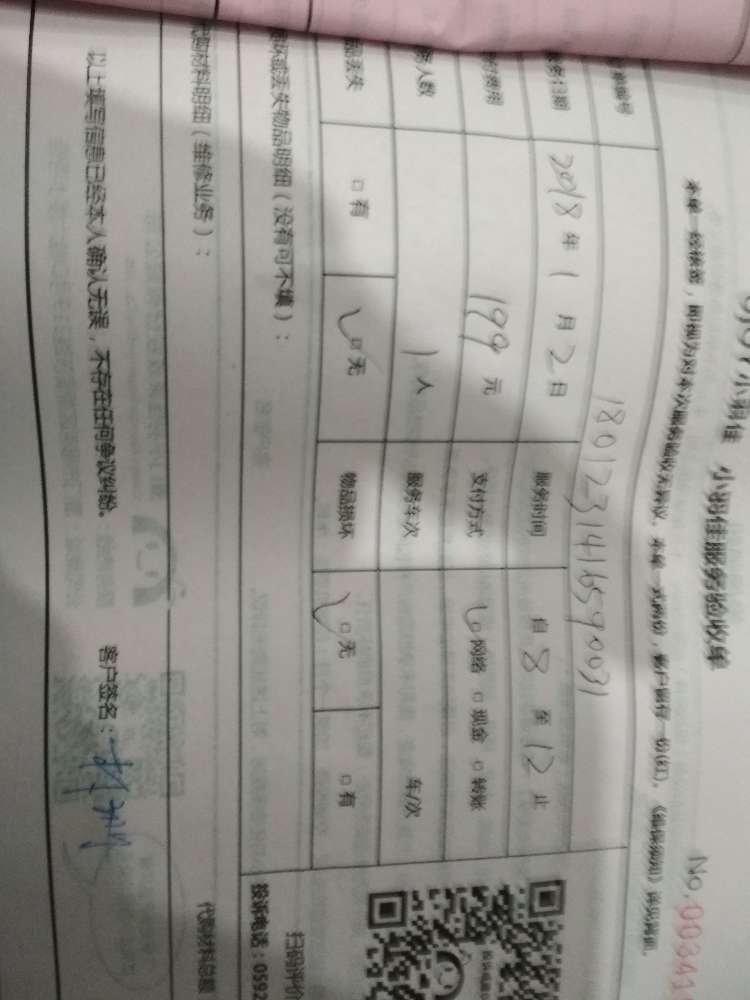 小羽佳 小羽佳服务验收单
No.00341
本单一经核签,即视为对本次服务验收无异议。本单一式两份,客户留存一份(红)。《维保须知》详见背面。
单编号 1801231416590031
务日期 2018年1月2日 服务时间 自8至12止
费用 199元 支付方式 □网络 □现金 □转账
务人数 1人 服务车次 车/次
品丢失 □有 □无 物品损坏 □无 □有
损坏或丢失物品明细(没有可不填):
代购材料明细(维修业务):
代购材料总额
以上填写信息已经本人确认无误,不存在任何争议纠纷。 客户签名:
扫码评价
投诉电话:0592